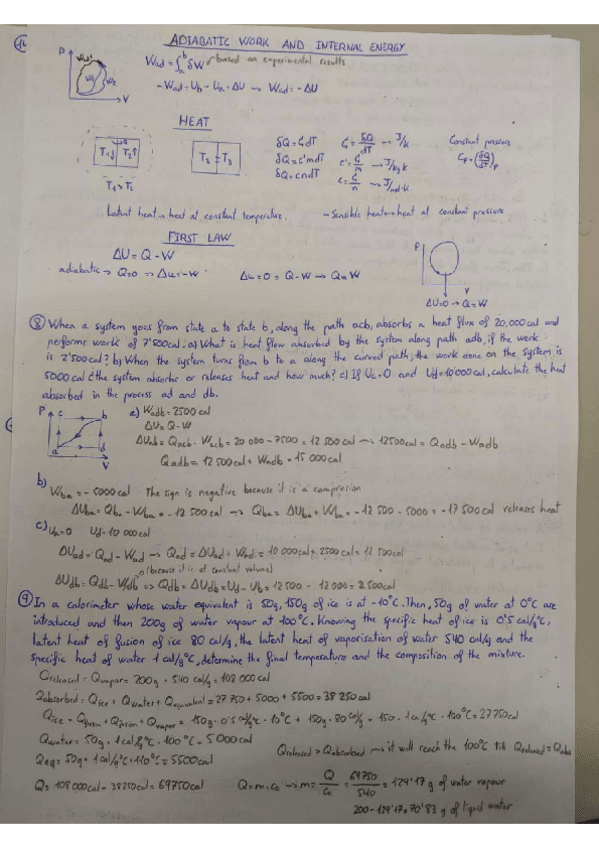 ADIABATIC WORK AND INTERNAL ENERGY
P
Wad = ∫ₐᵇ δW based on experimental results
-Wad = Ub - Ua = ΔU → Wad = -ΔU
V
HEAT
T₁ T₂
T₃ T₃
T₁ > T₂
δQ = C dT
δQ = c'mdT
δQ = cndT
C = δQ/dT → J/K
c' = C/m → J/kg K
c = C/n → J/mol·K
Constant pressure
Cp = (δQ/dT)p
Latent heat → heat at constant temperature.
- Sensible heat → heat at constant pressure
FIRST LAW
ΔU = Q - W
adiabatic → Q=0 → ΔU = -W
ΔU = 0 = Q - W → Q = W
P
V
ΔU=0 → Q = W
⑧ When a system goes from state a to state b, along the path acb, absorbs a heat flux of 20,000 cal and
performs work of 7'500 cal. a) What is heat flow absorbed by the system along path adb, if the work
is 2'500 cal? b) When the system turns from b to a along the curved path, the work done on the system is
5000 cal ¿the system absorbs or releases heat and how much? c) If Ua=0 and Ud=10'000 cal, calculate the heat
absorbed in the process ad and db.
P c b
a d
V
a) Wadb = 2500 cal
ΔU = Q - W
ΔUab = Qacb - Wacb = 20 000 - 7500 = 12 500 cal → 12500 cal = Qadb - Wadb
Qadb = 12 500 cal + Wadb = 15 000 cal
b)
Wba = - 5000 cal The sign is negative because it is a compresion
ΔUba = Qba - Wba = - 12 500 cal → Qba = ΔUba + Wba = - 12 500 - 5000 = - 17 500 cal releases heat
c) Ua=0 Ud=10 000 cal
ΔUad = Qad - Wad → Qad = ΔUad + Wad = 10 000 cal + 2500 cal = 12 500 cal
0 (because it is at constant volume)
ΔUdb = Qdb - Wdb => Qdb = ΔUdb = Ub - Ud = 12500 - 12 000 = 2500 cal
⑨ In a calorimeter whose water equivalent is 50g, 150g of ice is at -10°C. Then, 50g of water at 0°C are
introduced and then 200g of water vapour at 100°C. Knowing the specific heat of ice is 0'5 cal/g°C,
latent heat of fusion of ice 80 cal/g, the latent heat of vaporisation of water 540 cal/g and the
specific heat of water 1 cal/g°C, determine the final temperature and the composition of the mixture.
Qreleased = Qvapor = 200g · 540 cal/g = 108 000 cal
Qabsorbed = Qice + Qwater + Qequivalent = 27 750 + 5000 + 5500 = 38 250 cal
Qice = Qfusion + Qvapor = 150g · 0'5 cal/g°C · 10°C + 150g · 80 cal/g + 150 · 1 cal/g°C · 100°C = 27750 cal
Qwater = 50g · 1 cal/g°C · 100°C = 5000 cal
Qreleased > Qabsorbed → it will reach the 100°C till Qreleased = Qabs
Qeq = 50g · 1 cal/g°C · 110°C = 5500 cal
Q = 108 000 cal - 38250 cal = 69750 cal
Q = m·ce → m = Q/ce = 69750/540 = 129'17 g of water vapour
200 - 129'17 = 70'83 g of liquid water